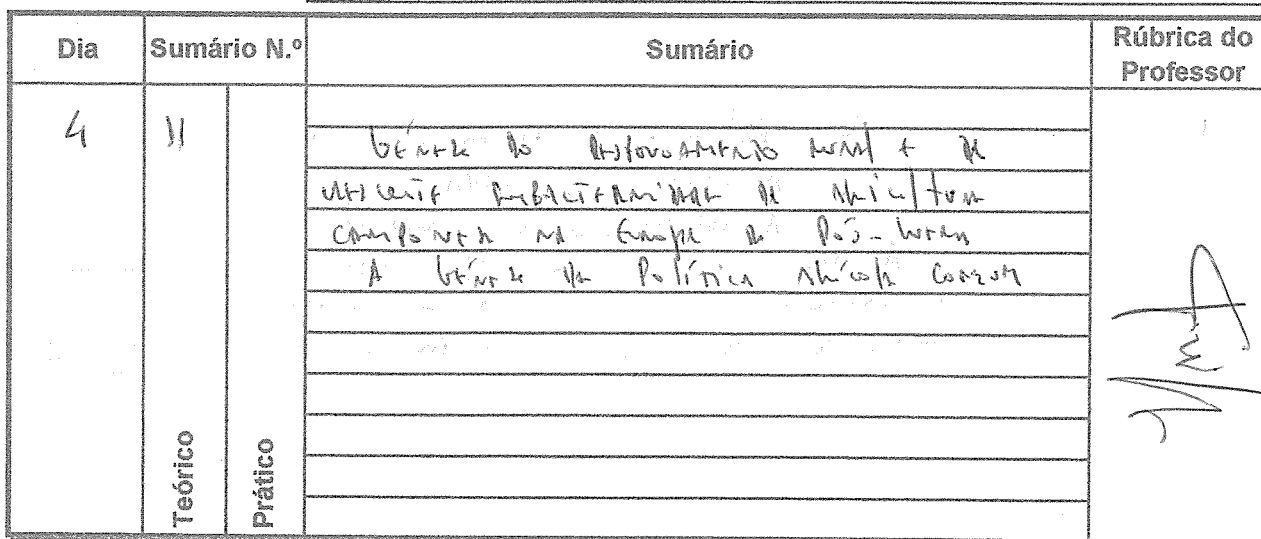 Dia Sumário N.º Sumário Rúbrica do Professor
4 11
Génese do despovoamento rural e da
camponesa na Europa do Pós-Guerra
A Génese da Política Agrícola Comum
Teórico Prático